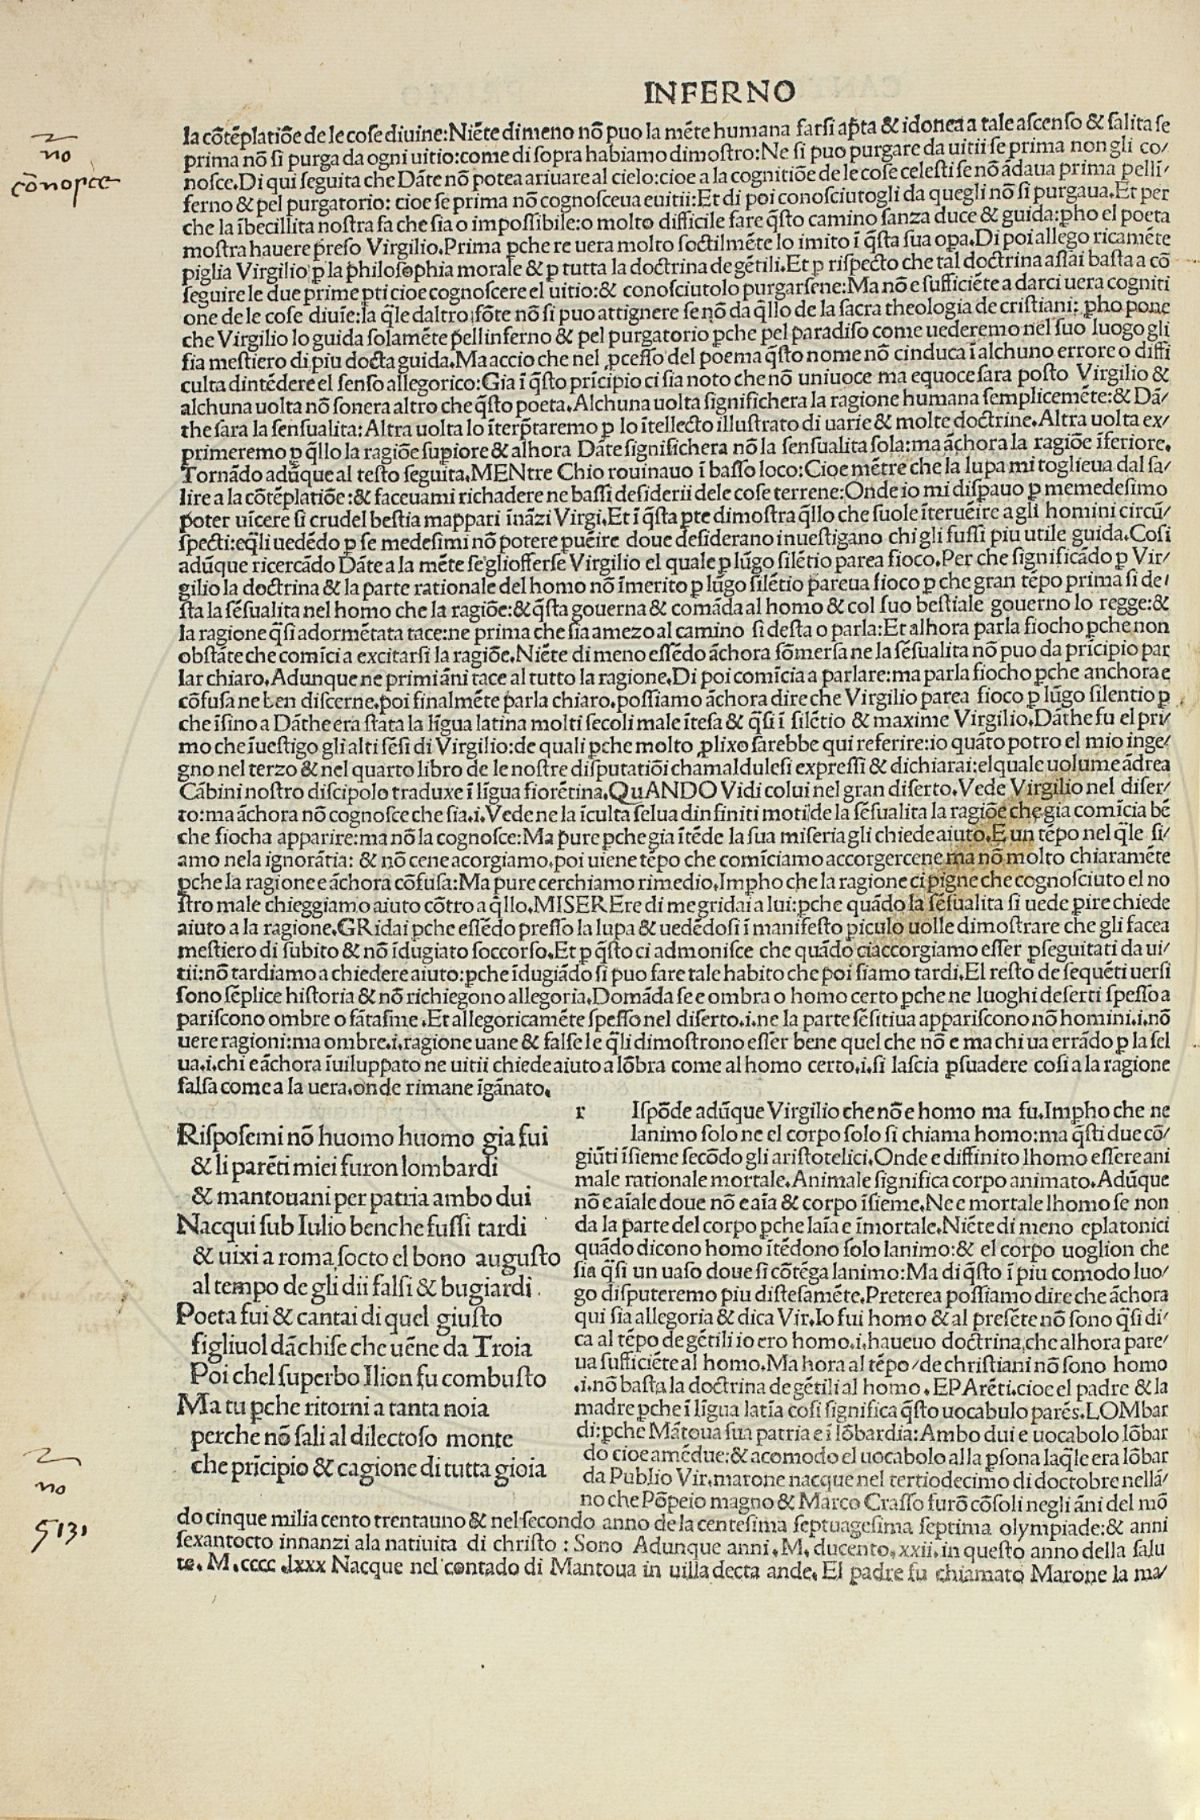 INFERNO
la cõtẽplatiõe de le cose diuine:Niẽte di meno nõ puo la mẽte humana farsi ap̃ta & idonea a tale ascenso & salita se
prima nõ si purga da ogni uitio:come di sopra habiamo dimostro:Ne si puo purgare da uitii se prima non gli co/
nosce.Di qui seguita che Dãte nõ potea ariuare al cielo:cioe a la cognitiõe de le cose celesti se nõ ãdaua prima pelli/
ferno & pel purgatorio: cioe se prima nõ cognosceua euitii:Et di poi conosciutogli da quegli nõ si purgaua.Et per
che la ĩbecillita nostra fa che sia o impossibile:o molto difficile fare q̃sto camino sanza duce & guida:ꝑho el poeta
mostra hauere preso Virgilio.Prima ꝑche re uera molto soctilmẽte lo imito ĩ q̃sta sua oꝑa.Di poi allegoricamẽte
piglia Virgilio ꝑ la philosophia morale & ꝑ tutta la doctrina de gẽtili.Et ꝑ rispecto che tal doctrina assai basta a cõ
seguire le due prime ꝑti cioe cognoscere el uitio:& conosciutolo purgarsene:Ma nõ e sufficiẽte a darci uera cogniti
one de le cose diuĩe:la q̃le daltro fõte nõ si puo attignere se nõ da q̃llo de la sacra theologia de cristiani: ꝑho pone
che Virgilio lo guida solamẽte pell inferno & pel purgatorio ꝑche pel paradiso come uederemo nel suo luogo gli
fia mestiero di piu docta guida.Ma accio che nel ꝓcesso del poema q̃sto nome nõ cinduca ĩ alchuno errore o diffi
culta dintẽdere el senso allegorico:Gia ĩ q̃sto prĩcipio ci sia noto che nõ uniuoce ma equoce sara posto Virgilio &
alchuna uolta nõ sonera altro che q̃sto poeta.Alchuna uolta significhera la ragione humana semplicemẽte:& Dã/
the sara la sensualita:Altra uolta lo ĩterp̃taremo ꝑ lo ĩtellecto illustrato di uarie & molte doctrine.Altra uolta ex/
primeremo ꝑ q̃llo la ragiõe suꝑiore & alhora Dãte significhera nõ la sensualita sola:ma ãchora la ragiõe ĩferiore.
Tornãdo adũque al testo seguita.MENtre Chio rouinauo ĩ basso loco:Cioe mẽtre che la lupa mi toglieua dal sa/
lire a la cõtẽplatiõe:& faceuami richadere ne bassi desiderii de le cose terrene:Onde io mi disꝑauo ꝑ me medesimo
poter uĩcere si crudel bestia mappari ĩnãzi Virgi.Et ĩ q̃sta ꝑte dimostra q̃llo che suole ĩteruẽire a gli homini circũ/
specti:e q̃li uedẽdo ꝑ se medesimi nõ potere ꝑuẽire doue desiderano inuestigano chi gli fussi piu utile guida.Cosi
adũque ricercãdo Dãte a la mẽte se gliofferse Virgilio el quale ꝑ lũgo silẽtio parea fioco.Per che significãdo ꝑ Vir/
gilio la doctrina & la parte rationale del homo nõ ĩmerito ꝑ lũgo silẽtio pareua fioco ꝑ che gran tẽpo prima si de/
sta la sẽsualita nel homo che la ragiõe:& q̃sta gouerna & comãda al homo & col suo bestiale gouerno lo regge:&
la ragione q̃si adormẽtata tace:ne prima che sia amezo al camino si desta o parla:Et alhora parla fiocho ꝑche non
obstãte che comĩci a excitarsi la ragiõe.Niẽte di meno essẽdo ãchora sõmersa ne la sẽsualita nõ puo da prĩcipio par
lar chiaro.Adunque ne primi ãni tace al tutto la ragione.Di poi comĩcia a parlare:ma parla fiocho ꝑche anchora e
cõfusa ne ben discerne.poi finalmẽte parla chiaro.possiamo ãchora dire che Virgilio parea fioco ꝑ lũgo silentio ꝑ
che ĩsino a Dãthe era stata la lĩgua latina molti secoli male ĩtesa & q̃si ĩ silẽtio & maxime Virgilio.Dãthe fu el pri/
mo che ĩuestigo gli alti sẽsi di Virgilio:de quali ꝑche molto ꝓlixo sarebbe qui referire:io quãto potro el mio inge/
gno nel terzo & nel quarto libro de le nostre disputatiõi chamaldulesi expressi & dichiarai:el quale uolume ãdrea
Cãbini nostro discipolo traduxe ĩ lĩgua fiorẽtina.QuANDO Vidi colui nel gran diserto.Vede Virgilio nel diser/
to:ma ãchora nõ cognosce che sia.i.Vede ne la ĩculta selua dinfiniti moti de la sẽsualita la ragiõe che gia comĩcia bẽ
che fiocha apparire:ma nõ la cognosce:Ma pure ꝑche gia ĩtẽde la sua miseria gli chiede aiuto.E un tẽpo nel q̃le si/
amo ne la ignorãtia: & nõ cene acorgiamo.poi uiene tẽpo che comĩciamo accorgercene ma nõ molto chiaramẽte
ꝑche la ragione e ãchora cõfusa:Ma pure cerchiamo rimedio.Impho che la ragione ci pigne che cognosciuto el no
stro male chieggiamo aiuto cõtro a q̃llo.MISEREre di me gridai a lui:ꝑche quãdo la sẽsualita si uede ꝑire chiede
aiuto a la ragione.GRidai ꝑche essẽdo presso la lupa & uedẽdosi ĩ manifesto ꝑiculo uolle dimostrare che gli facea
mestiero di subito & nõ ĩdugiato soccorso.Et ꝑ q̃sto ci admonisce che quãdo ciaccorgiamo esser ꝑseguitati da ui/
tii:nõ tardiamo a chiedere aiuto:ꝑche ĩdugiãdo si puo fare tale habito che poi siamo tardi.El resto de sequẽti uersi
sono sẽplice historia & nõ richiegono allegoria.Domãda se e ombra o homo certo ꝑche ne luoghi deserti spesso a
pariscono ombre o fãtasme.Et allegoricamẽte spesso nel diserto.i.ne la parte sẽsitiua appariscono nõ homini.i.nõ
uere ragioni:ma ombre.i.ragione uane & false le q̃li dimostrono esser bene quel che nõ e ma chi ua errãdo ꝑ la sel
ua.i.chi e ãchora ĩuiluppato ne uitii chiede aiuto a lõbra come al homo certo.i.si lascia ꝑsuadere cosi a la ragione
falsa come a la uera.onde rimane ĩgãnato.
Risposemi nõ huomo huomo gia fui
& li parẽti miei furon lombardi
& mantouani per patria ambo dui
Nacqui sub Iulio benche fussi tardi
& uixi a roma socto el bono augusto
al tempo de gli dii falsi & bugiardi.
Poeta fui & cantai di quel giusto
figliuol dãchise che uẽne da Troia
Poi chel superbo Ilion fu combusto
Ma tu ꝑche ritorni a tanta noia
perche nõ sali al dilectoso monte
che prĩcipio & cagione di tutta gioia
r Ispõde adũque Virgilio che nõ e homo ma fu.Impho che ne
lanimo solo ne el corpo solo si chiama homo:ma q̃sti due cõ/
giũti ĩsieme secõdo gli aristotelici.Onde e diffinito lhomo essere ani
male rationale mortale.Animale significa corpo animato.Adũque
nõ e aĩale doue nõ e aĩa & corpo ĩsieme.Ne e mortale lhomo se non
da la parte del corpo ꝑche laĩa e ĩmortale.Niẽte di meno e platonici
quãdo dicono homo ĩtẽdono solo lanimo:& el corpo uoglion che
sia q̃si un uaso doue si cõtẽga lanimo:Ma di q̃sto ĩ piu comodo luo/
go disputeremo piu distesamẽte.Preterea possiamo dire che ãchora
qui sia allegoria & dica Vir.Io fui homo & al presẽte nõ sono q̃si di/
ca al tẽpo de gẽtili io ero homo.i.haueuo doctrina che alhora pare/
ua sufficiẽte al homo.Ma hora al tẽpo/de christiani nõ sono homo
.i.nõ basta la doctrina de gẽtili al homo.EPArẽti.cioe el padre & la
madre ꝑche ĩ lĩgua latĩa cosi significa q̃sto uocabulo parẽs.LOMbar
di:ꝑche Mãtoua sua patria e ĩ lõbardia:Ambo dui e uocabolo lõbar
do cioe amẽdue:& acomodo el uocabolo alla ꝑsona laq̃le era lõbar
da Publio Vir.marone nacque nel tertiodecimo di doctobre nellã/
no che Põpeio magno & Marco Crasso furõ cõsoli negli ãni del mõ
do cinque milia cento trentauno & nel secondo anno de la centesima septuagesima septima olympiade:& anni
sexantocto innanzi ala natiuita di christo : Sono Adunque anni.M. ducento.xxii.in questo anno della salu
te. M.cccc .lxxx Nacque nel contado di Mantoua in uilla decta ande. El padre fu chiamato Marone la ma/
no
no
5131